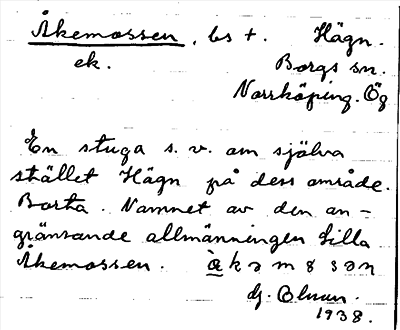 Åkemossen, bs +. Hägn.
ek. Borgs sn.
Norrköping. Ög
En stuga s. v. om själva
stället Hägn på dess område.
Borta. Namnet av den an-
gränsande allmänningen Lilla
Åkemossen.
dj.
1938.